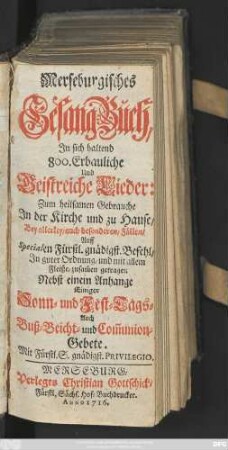 Merseburgisches
Gesang Buch,
In sich haltend
800. Erbauliche
Und
Geistreiche Lieder:
Zum heilsamen Gebrauche
In der Kirche und zu Hause/
Bey allerley/auch besonderen/Fällen/
Auff
Specialen Fürstl. gnädigst. Befehl/
In guter Ordnung, und mit allem
Fleiße, zusammen getragen.
Nebst einem Anhange
Einiger
Sonn- und Fest-Tags-
Auch
Buß-Beicht- und Com̃union-
Gebete.
Mit Fürstl. S. gnädigst. PRIVILEGIO.
MERSEBURG,
Verlegts Christian Gottschick,
Fürstl. Sächs. Hof-Buchdrucker.
ANNO 1716.